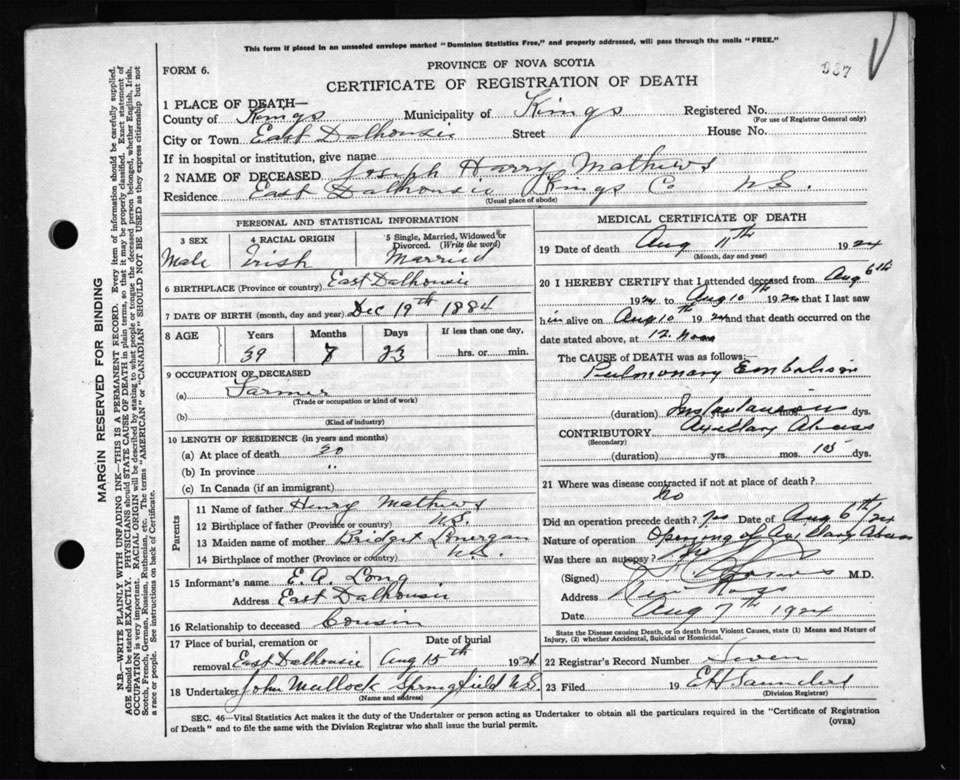 This form if placed in an unsealed envelope marked "Dominion Statistics Free," and properly addressed, will pass through the mails "FREE."
FORM 6.
PROVINCE OF NOVA SCOTIA
987
CERTIFICATE OF REGISTRATION OF DEATH
1 PLACE OF DEATH—
County of Kings Municipality of Kings Registered No.
(For use of Registrar General only)
City or Town East Dalhousie Street House No.
If in hospital or institution, give name
2 NAME OF DECEASED Joseph Harry Mathews
Residence East Dalhousie Kings Co N.S.
(Usual place of abode)
PERSONAL AND STATISTICAL INFORMATION
3 SEX 4 RACIAL ORIGIN 5 Single, Married, Widowed or Divorced. (Write the word)
Male Irish Married
6 BIRTHPLACE (Province or country) East Dalhousie
7 DATE OF BIRTH (month, day and year) Dec 19th 1884
8 AGE Years Months Days If less than one day,
39 7 23 hrs. or min.
9 OCCUPATION OF DECEASED
(a) Farmer
(Trade or occupation or kind of work)
(b)
(Kind of industry)
10 LENGTH OF RESIDENCE (in years and months)
(a) At place of death 20
(b) In province "
(c) In Canada (if an immigrant)
Parents
11 Name of father Henry Mathews
12 Birthplace of father (Province or country) N.S.
13 Maiden name of mother Bridget Lonergan
14 Birthplace of mother (Province or country) N.S.
15 Informant's name E. A. Long
Address East Dalhousie
16 Relationship to deceased Cousin
17 Place of burial, cremation or Date of burial
removal East Dalhousie Aug 15th 1924
18 Undertaker John Mullock Springfield N.S.
(Name and address)
MEDICAL CERTIFICATE OF DEATH
19 Date of death Aug 11th 1924
(Month, day and year)
20 I HEREBY CERTIFY that I attended deceased from Aug 6th
1924 to Aug 10th 1924 that I last saw
him alive on Aug 10th 1924 and that death occurred on
date stated above, at 12 Noon
The CAUSE of DEATH was as follows:—
Pulmonary Embolism
(duration) Instantaneous mos. dys.
CONTRIBUTORY Axillary Abscess
(Secondary)
(duration) yrs. mos. 15 dys.
21 Where was disease contracted if not at place of death?
No
Did an operation precede death? Yes Date of Aug 6th/24
Nature of operation Opening of Axillary Abscess
Was there an autopsy?
(Signed) M.D.
Address New Ross
Date Aug 7th 1924
State the Disease causing Death, or in death from Violent Causes, state (1) Means and Nature of Injury, (2) whether Accidental, Suicidal or Homicidal.
22 Registrar's Record Number Seven
23 Filed 19 E H Saunders
(Division Registrar)
SEC. 46—Vital Statistics Act makes it the duty of the Undertaker or person acting as Undertaker to obtain all the particulars required in the "Certificate of Registration
of Death" and to file the same with the Division Registrar who shall issue the burial permit.
(OVER)
MARGIN RESERVED FOR BINDING
N.B.—WRITE PLAINLY, WITH UNFADING INK—THIS IS A PERMANENT RECORD. Every item of information should be carefully supplied.
AGE should be stated EXACTLY. PHYSICIANS should STATE CAUSE OF DEATH in plain terms, so that it may be properly classified. Exact statement of
OCCUPATION is very important. RACIAL ORIGIN will be described by stating to what people or tongue the deceased person belonged, whether English, Irish,
Scotch, French, German, Russian, Ruthenian, etc. The terms "AMERICAN" or "CANADIAN" SHOULD NOT BE USED as they express citizenship but not
a race or people. See instructions on back of Certificate.